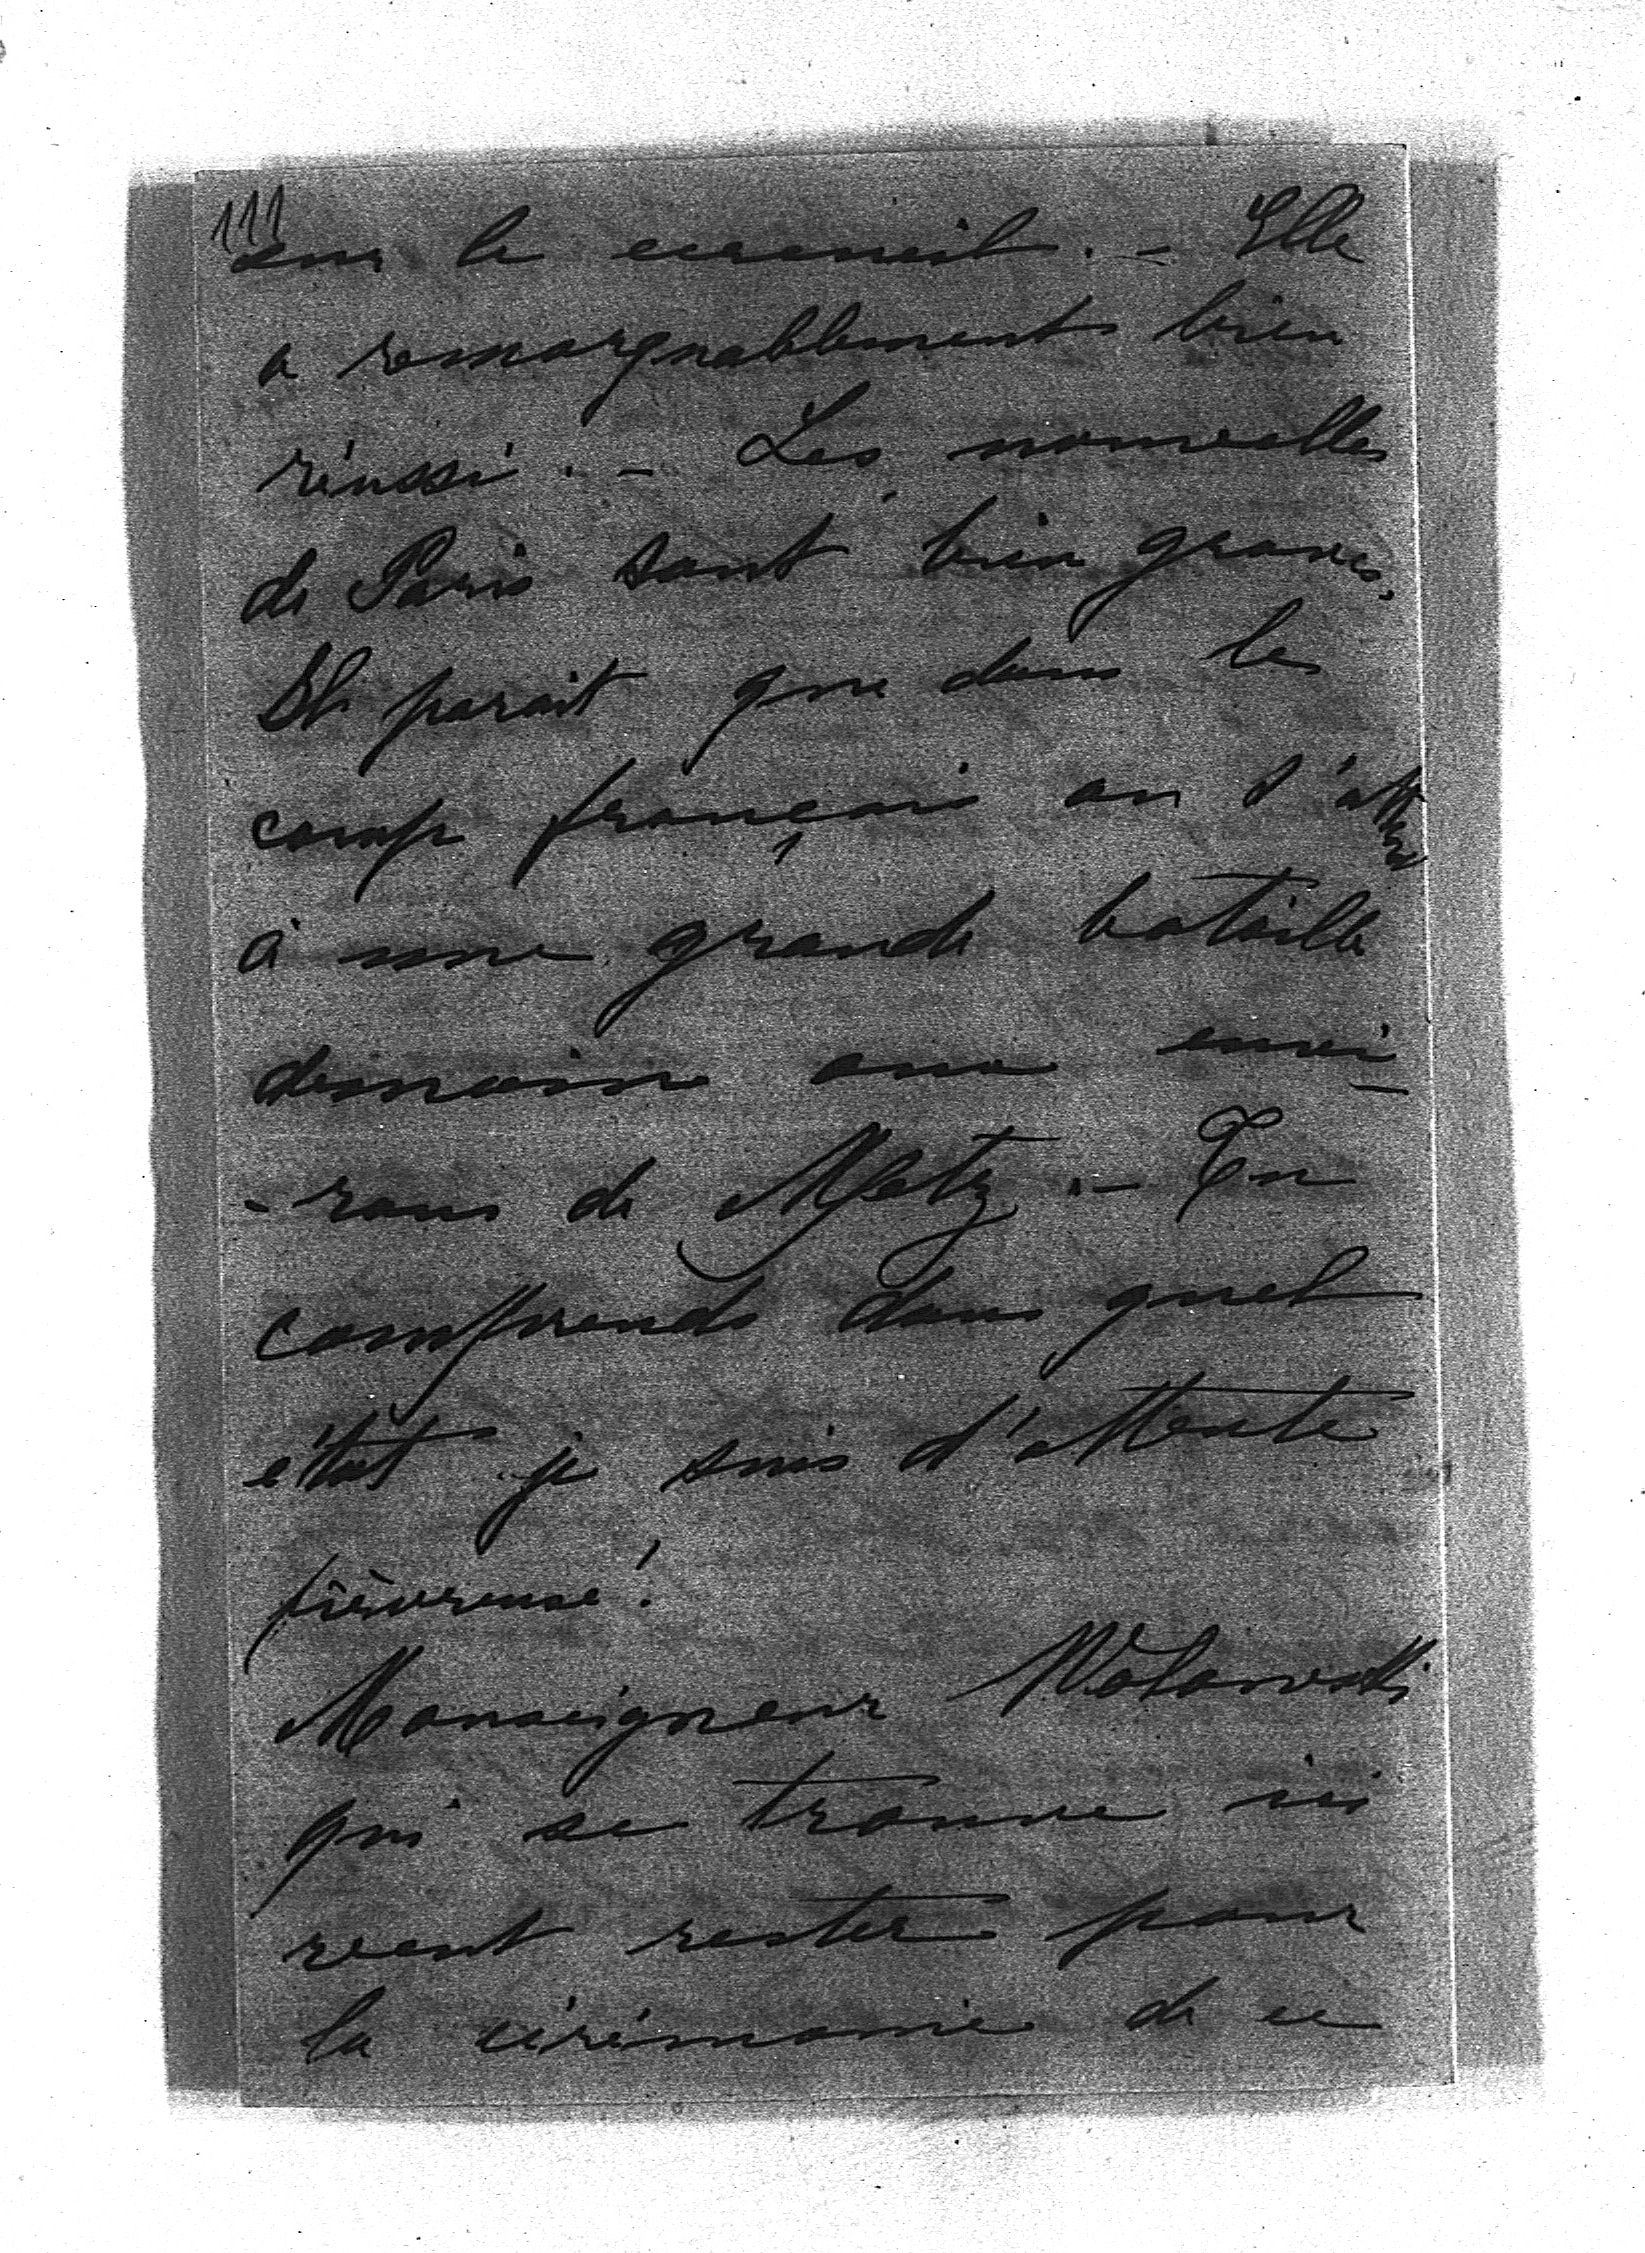 111
sur le cercueil. – Elle
a remarquablement bien
réussi. – Les nouvelles
de Paris sont bien graves.
Il parait que dans les
camp français on s'attend
à une grande bataille
demain aux envi-
-rons de Metz. – Tu
comprends dans quel
état je suis d'attente
fiévreuse!
Monseigneur Wolowski
qui se trouve ici
veut rester pour
la cérémonie de ce